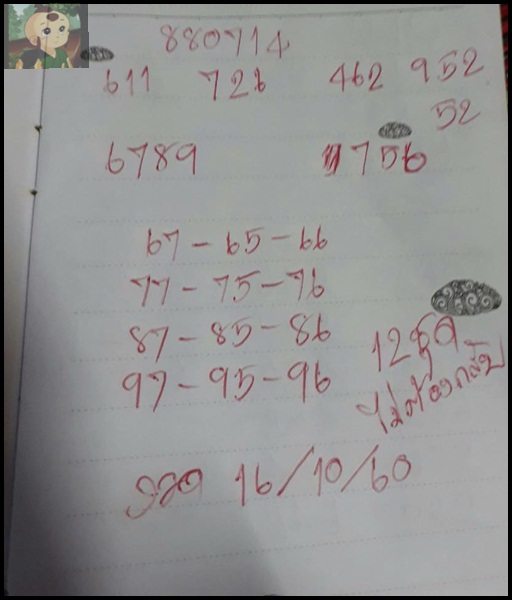 880714
611 726 462 952
52
6789 1756
67-65-66
77-75-76
87-85-86
97-95-96
12ชุด
ไม่ต้องกลับ
งวด 16/10/60